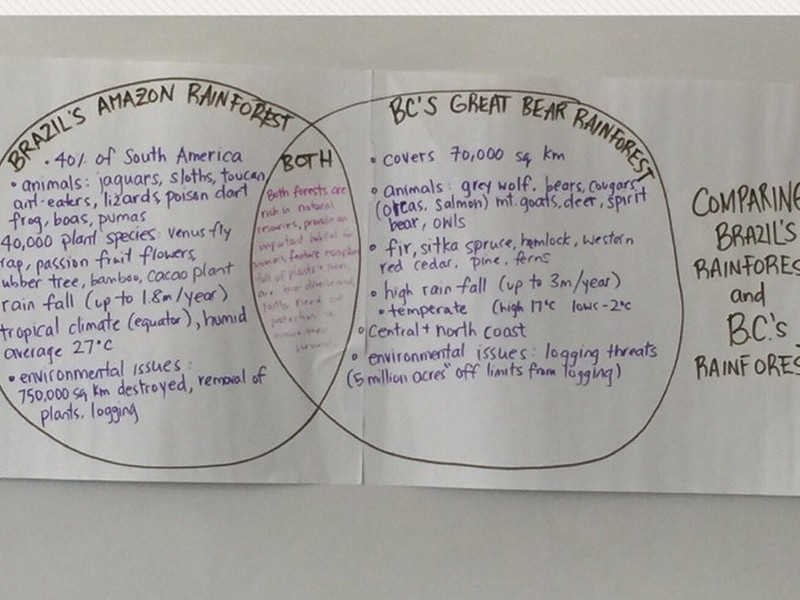 BRAZIL'S AMAZON RAINFOREST
• 40% of South America
• animals: jaguars, sloths, toucan,
ant-eaters, lizards, poison dart
frog, boas, pumas
40,000 plant species: venus fly
rap, passion fruit flowers,
ubber tree, bamboo, cacao plant
rain fall (up to 1.8m/year)
tropical climate (equator), humid
average 27°C
• environmental issues:
750,000 sq km destroyed, removal of
plants, logging
BOTH
Both forests are
rich in natural
resources, provide an
important habitat for
animals, feature
full of plants + trees,
are
need
protection
BC'S GREAT BEAR RAINFOREST
• covers 70,000 sq km
• animals: grey wolf, bears, cougars,
(orcas, salmon) mt. goats, deer, spirit
bear, owls
• fir, sitka spruce, hemlock, western
red cedar, pine, ferns
• high rain fall (up to 3m/year)
• temperate (high 17°C lows -2°C
• Central + north coast
• environmental issues: logging threats
(5 million acres" off limits from logging)
COMPARING
BRAZIL'S
RAINFORES
and
BC's
RAINFORES